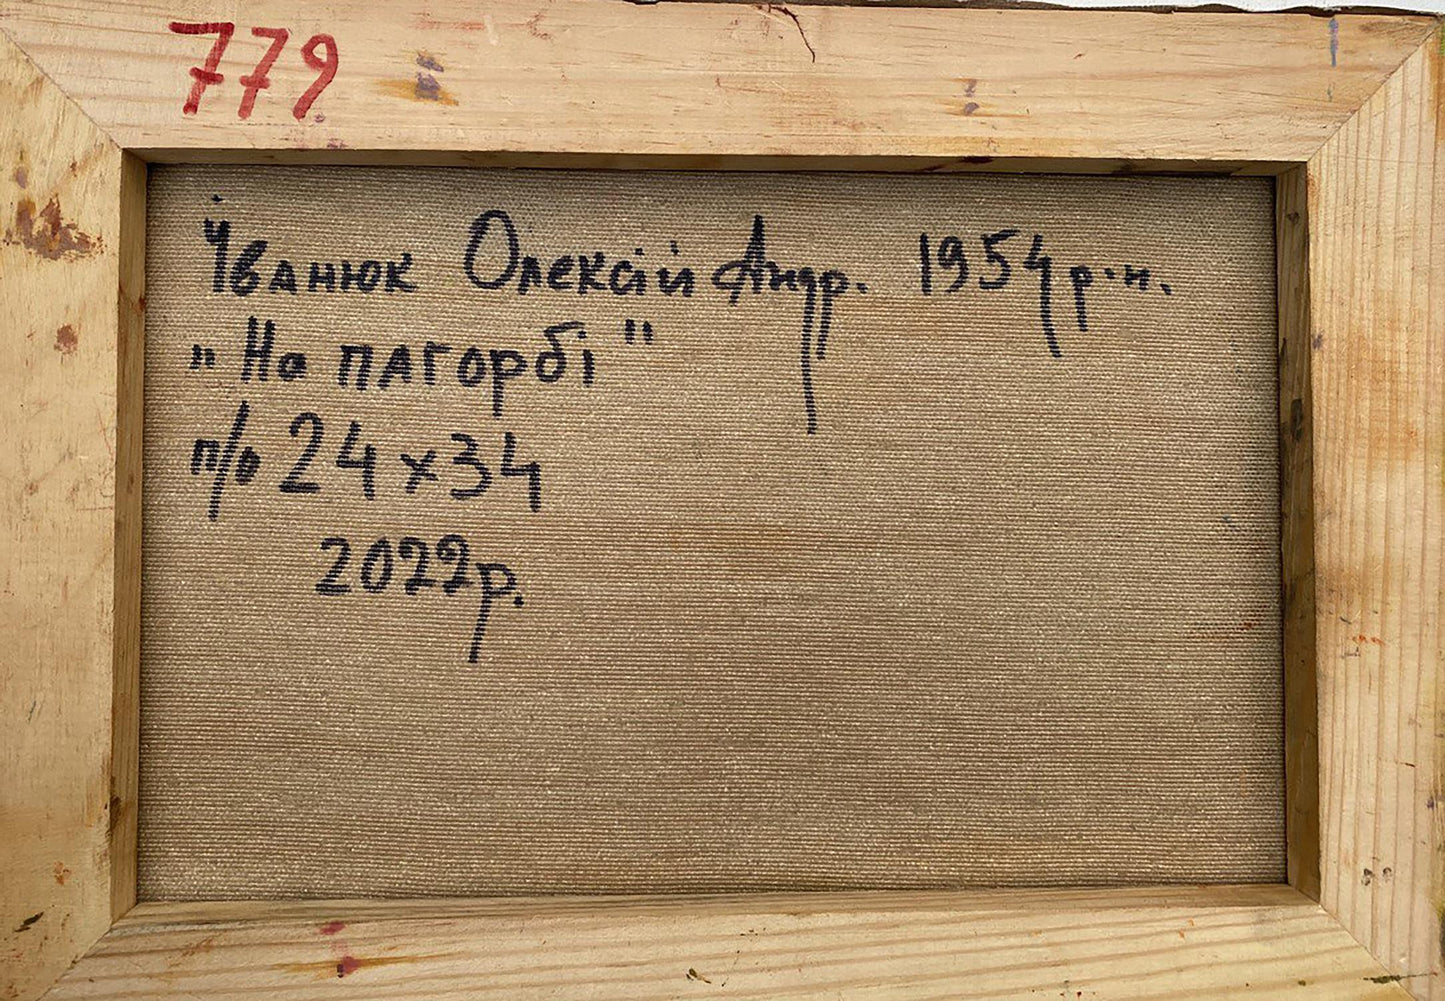 779
Іванюк Олексій Андр. 1954 р.н.
„На пагорбі"
п/о 24х34
2022р.